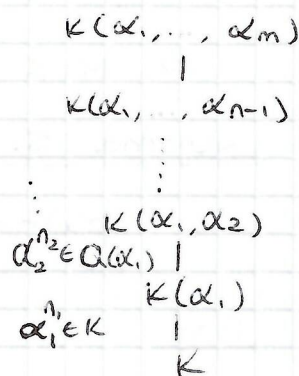 K(α₁, ..., αₘ)
|
K(α₁, ..., αₙ₋₁)
⋮
⋮ K(α₁, α₂)
α₂ⁿ² ∈ Q(α₁) |
K(α₁)
α₁ⁿ¹ ∈ K |
K